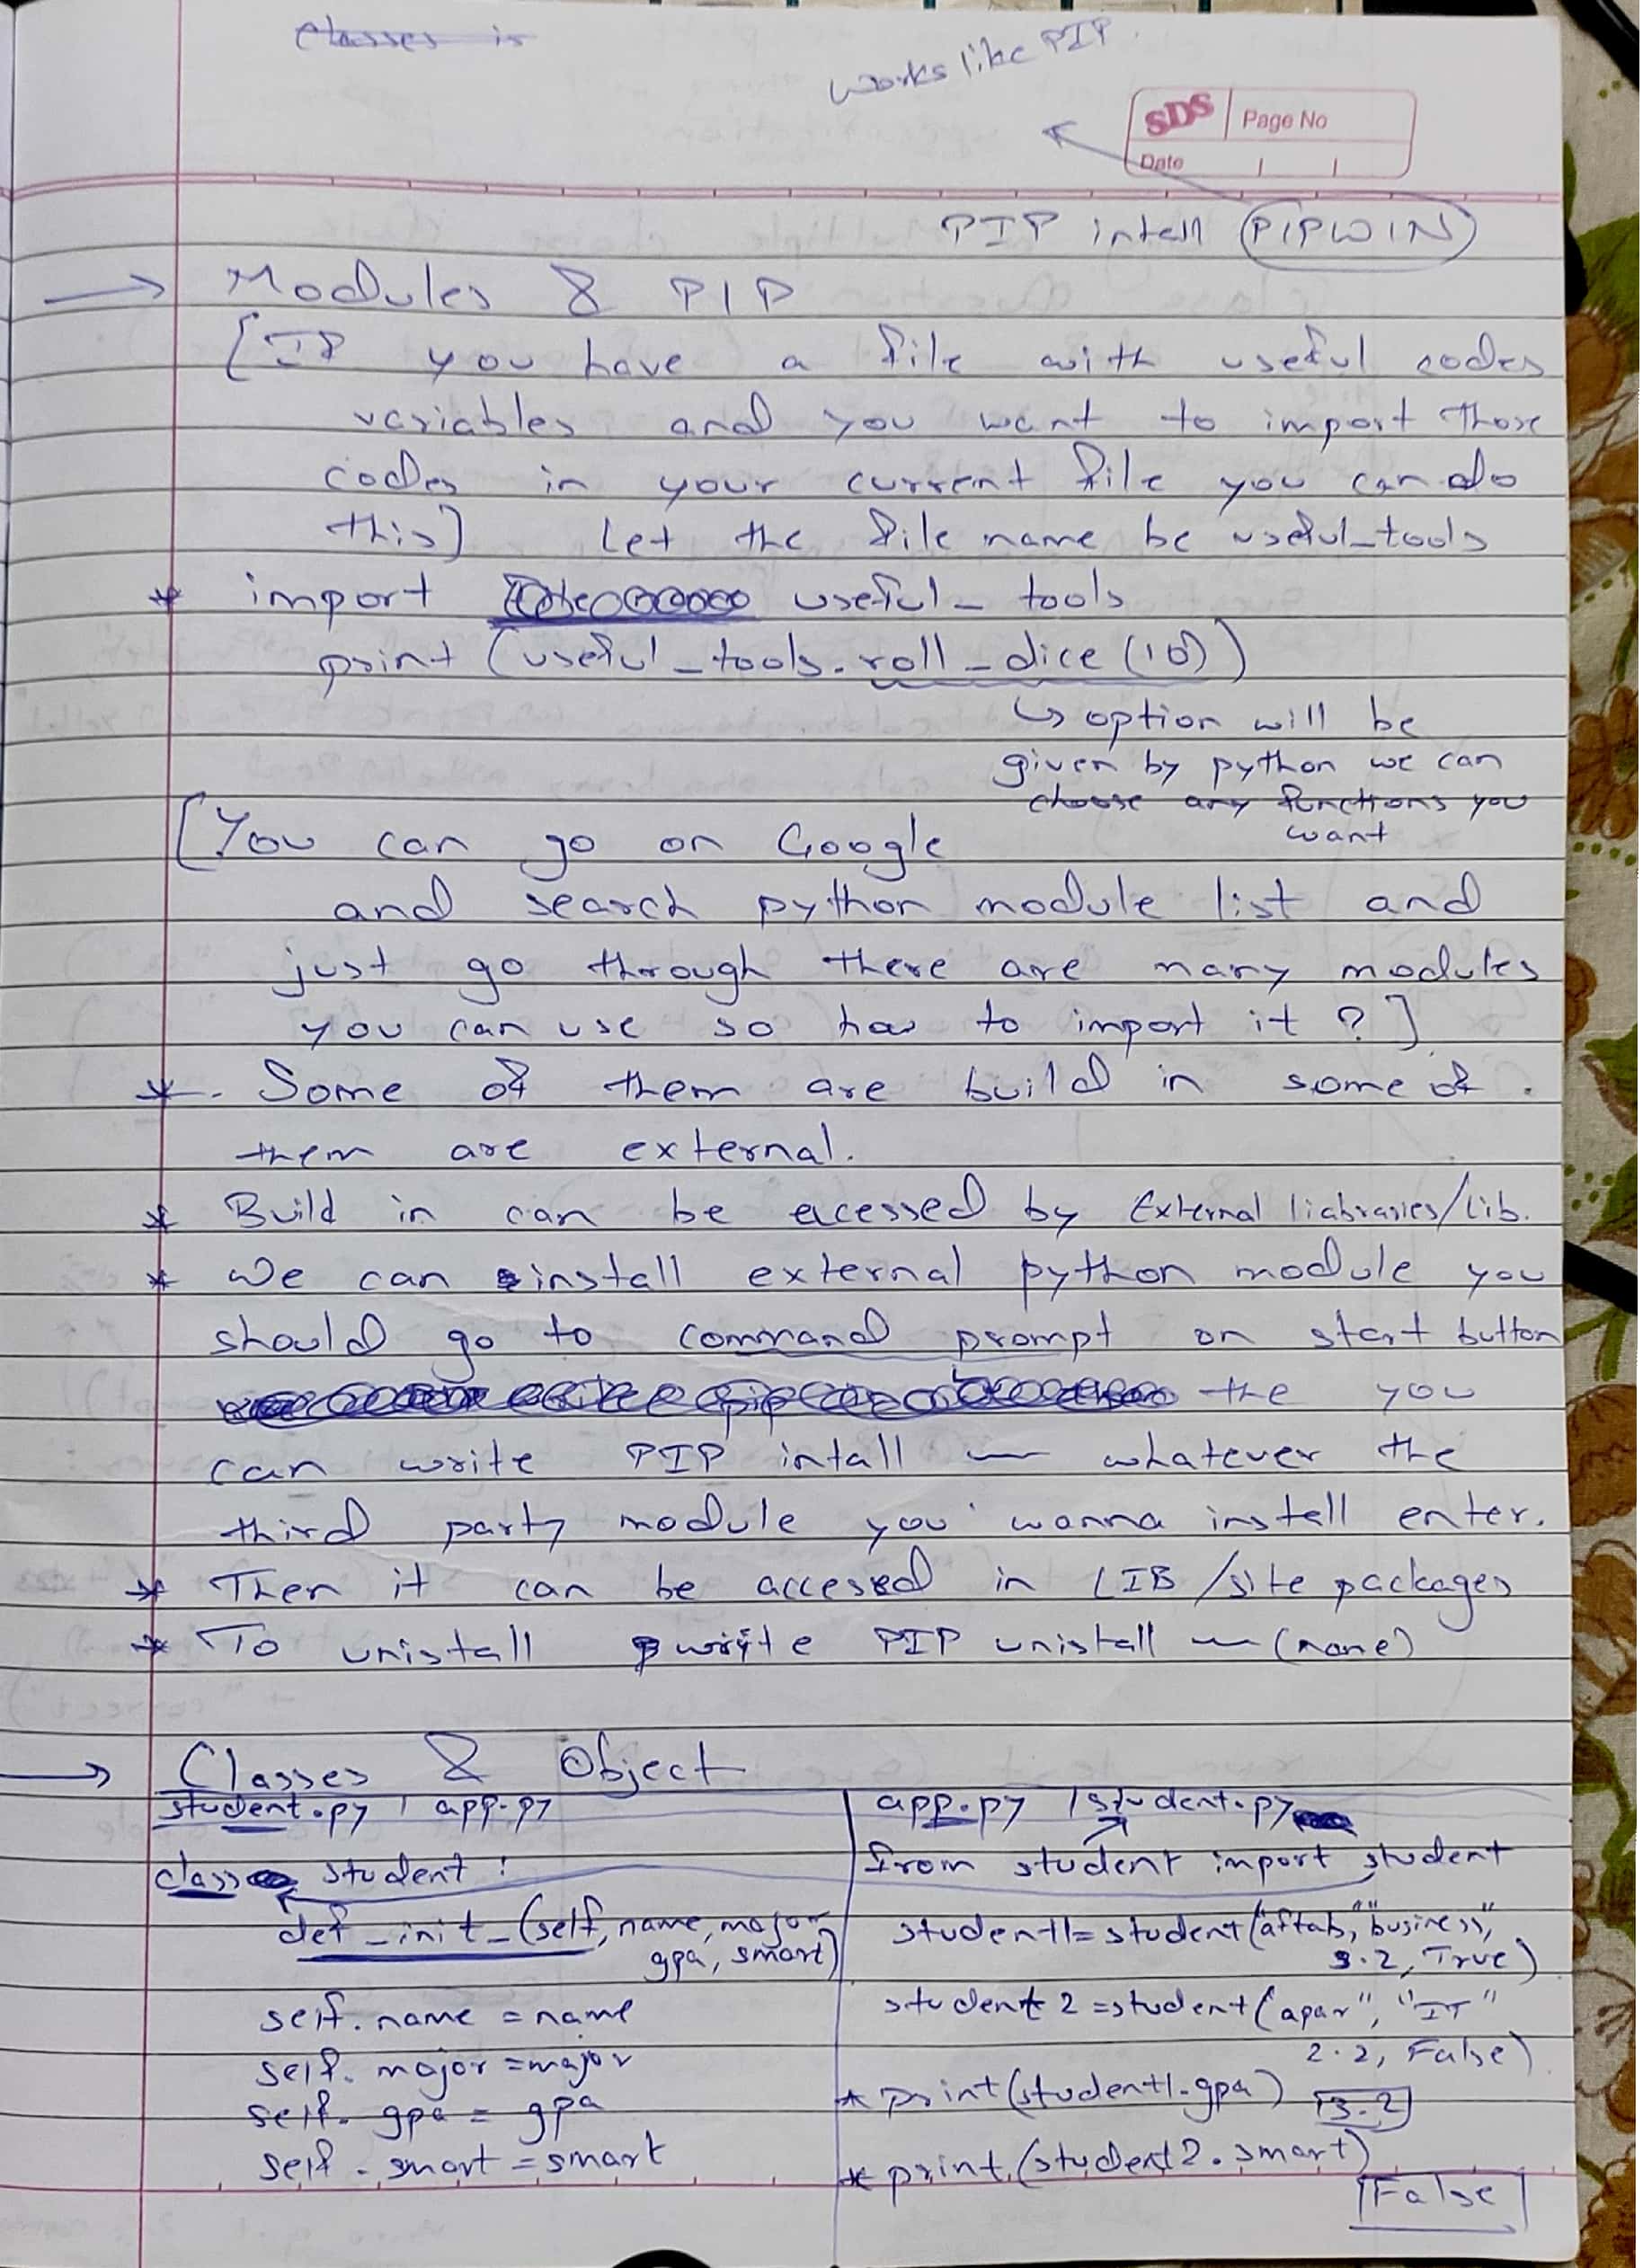 Classes is
works like PIP.
SDS Page No
Date
PIP intall PIPWIN
→ Modules & PIP
[If you have a file with useful codes
variables and you want to import those
codes in your current file you can do
this] Let the file name be useful_tools
* import useful_tools
print (useful_tools.roll_dice (10))
↳ option will be
given by python we can
choose any functions you
want
[You can go on Google
and search python module list and
just go through there are many modules
you can use so how to import it ?]
*. Some of them are build in some of.
them are external.
* Build in can be acessed by External liabraries/lib.
* We can install external python module you
should go to command prompt on start button
the you
can write PIP intall — whatever the
third party module you wanna install enter.
* Then it can be accessed in LIB /site packages
* To unistall write PIP unistall — (name)
→ Classes & Object
student.py / app.py
class student :
def _init_ (self, name, major
gpa, smart)
self. name = name
self. major = major
self. gpa = gpa
self. smart = smart
app.py / student.py
from student import student
student1= student("aftab," "business",
3.2, True)
student 2 = student ("apar", "IT"
2.2, False)
* print(student1.gpa) 3.2
* print (student2. smart)
False